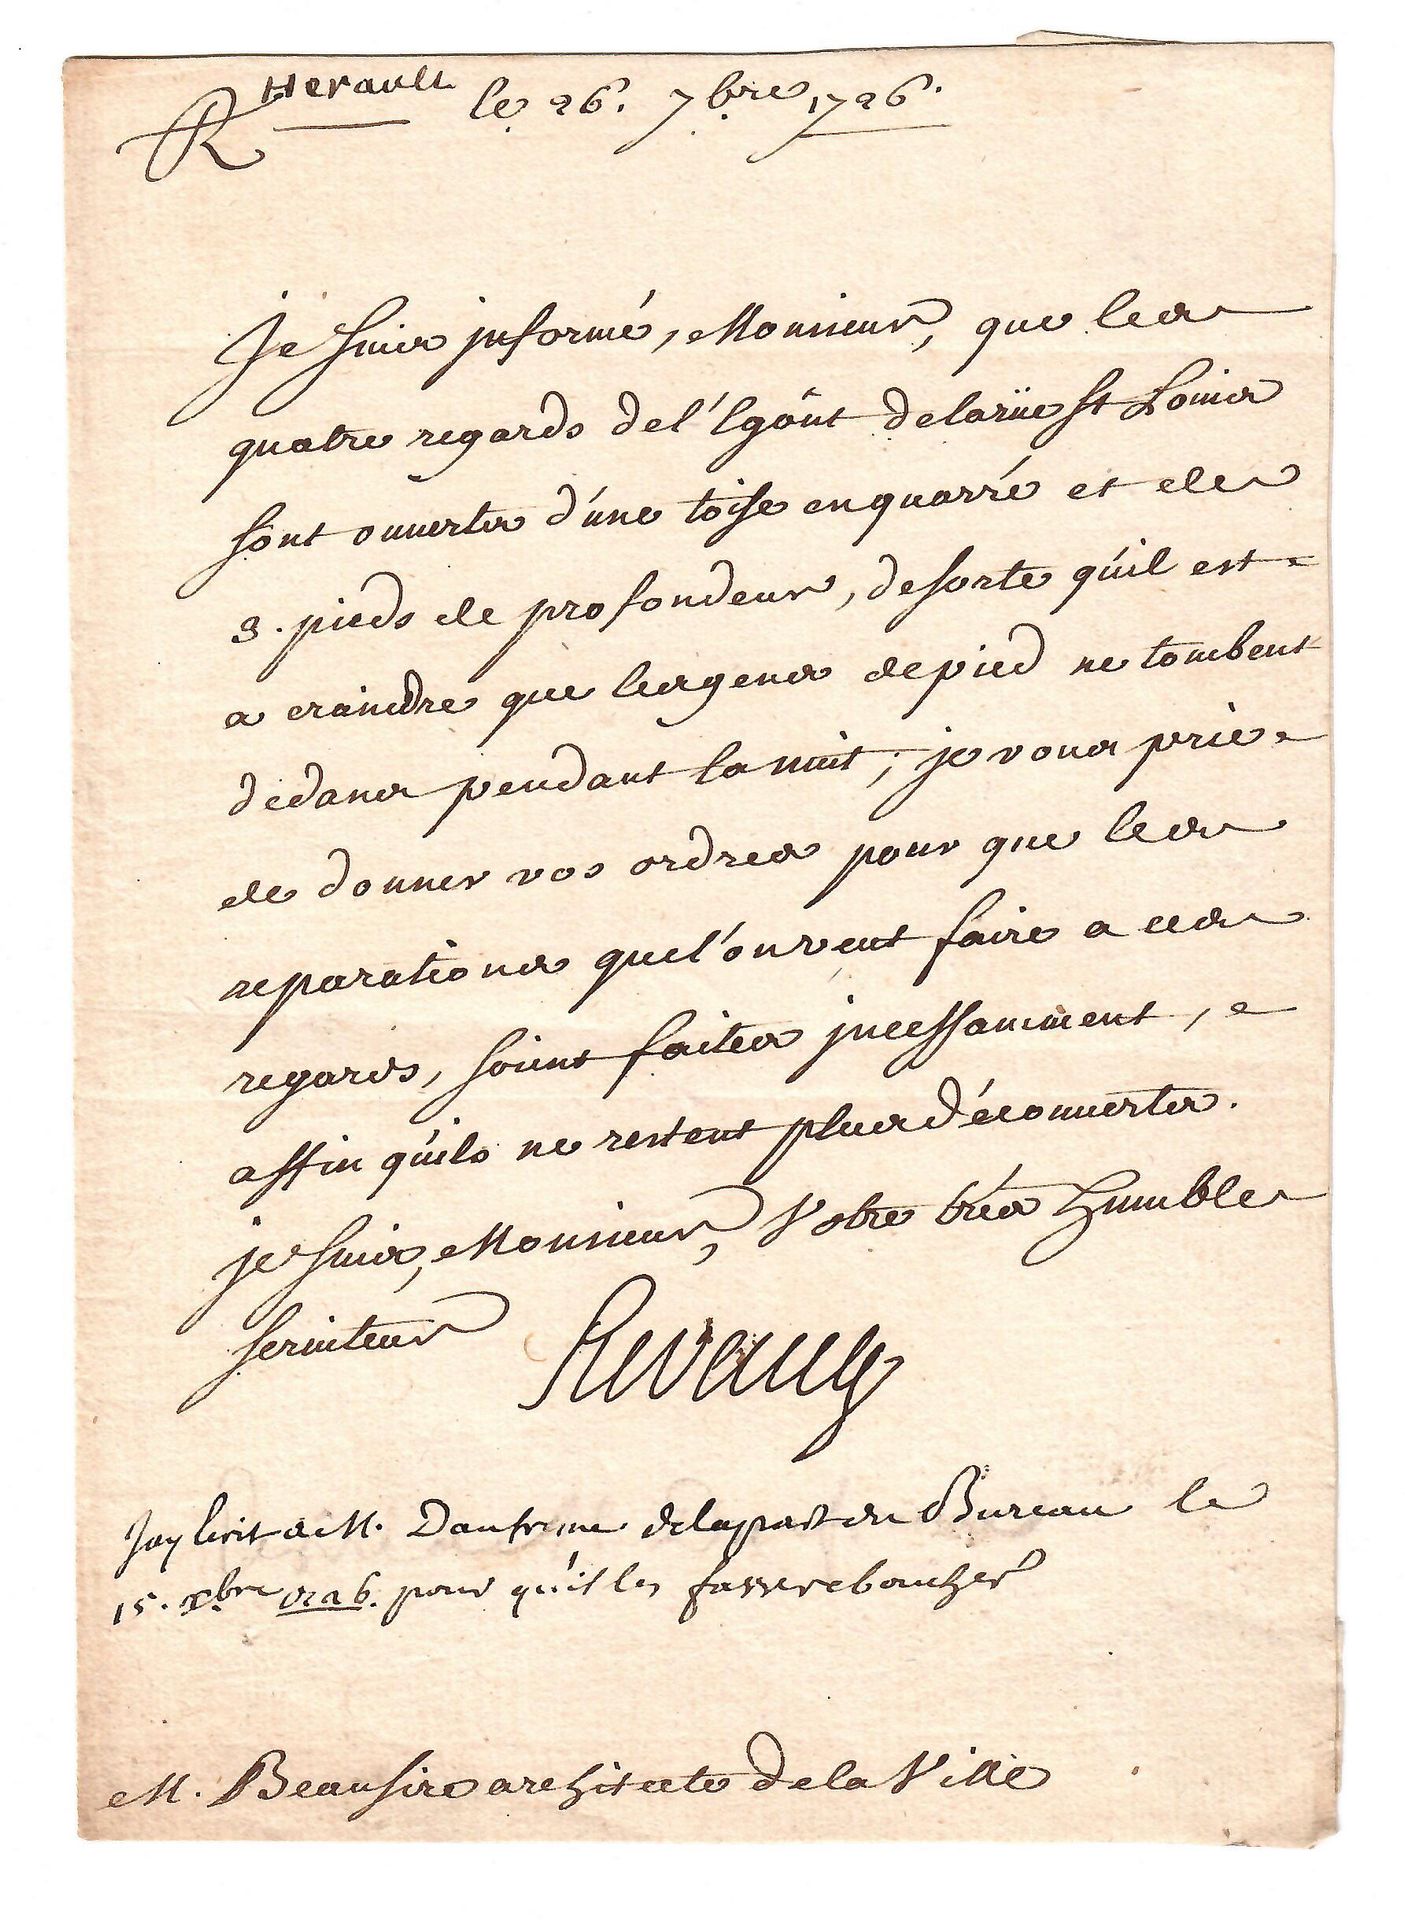 R Herault le 26. 7bre 1726.
Je suis jnformé, Monsieur, que les
quatre regards de l'Egôut de la rüe St Louis
sont ouuerts d'une toise en quarré et de
3. pieds de profondeur, de sorte qu'il est
a craindre que les gens de pied ne tombent
dedans pendant la nuit; je vous prie
de donner vos ordres pour que les
reparations que l'on veut faire a ces
regards, soient faites jncessamment,
affin qu'ils ne restent plus découuerts.
je suis, Monsieur, Votre trés humble
seruiteur Herault
Jay Ecrit a M. de la part du Bureau le
15. Xbre 1726. pour qu'il les fasse reboucher
M. Beausire architecte de la Ville